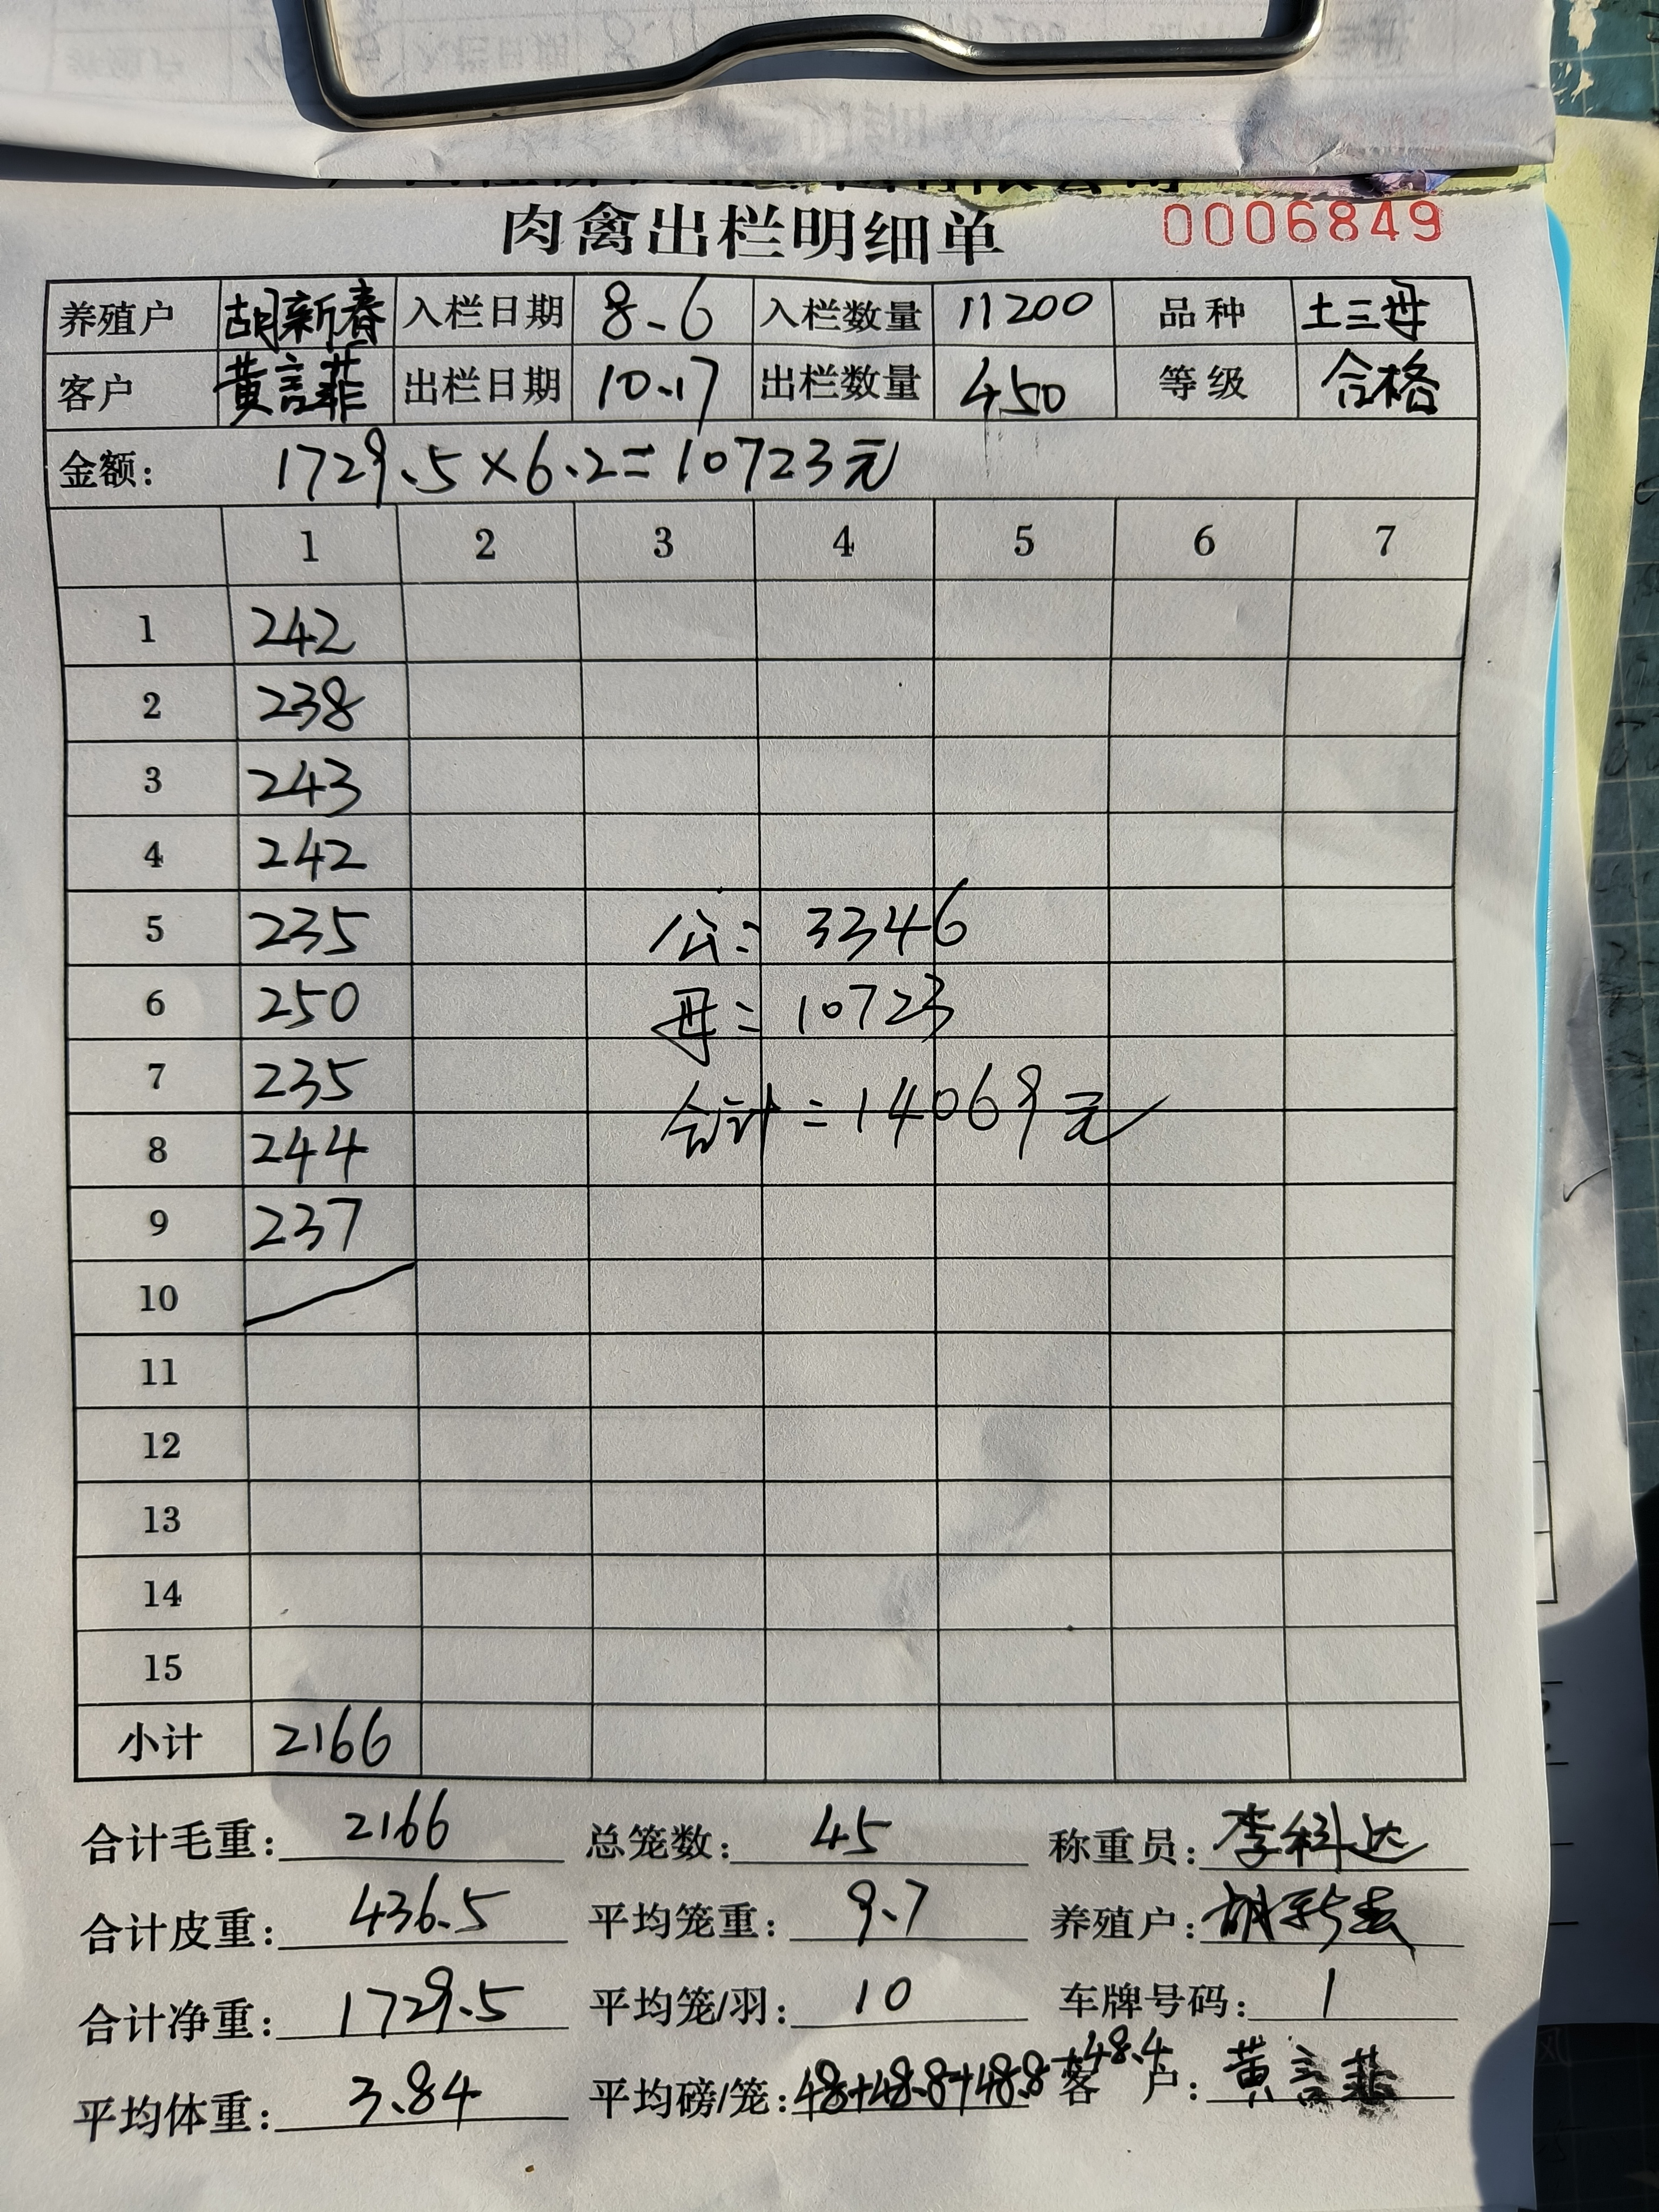 肉禽出栏明细单 0006849
养殖户 胡新春 入栏日期 8.6 入栏数量 11200 品种 土三母
客户 黄言菲 出栏日期 10.17 出栏数量 450 等级 合格
金额： 1729.5×6.2=10723元
1 2 3 4 5 6 7
1 242
2 238
3 243
4 242
5 235 公: 3346
6 250 母= 10723
7 235
合计=14069元
8 244
9 237
10
11
12
13
14
15
小计 2166
合计毛重: 2166 总笼数: 45 称重员: 李科达
合计皮重: 436.5 平均笼重: 9.7 养殖户: 胡新春
合计净重: 1729.5 平均笼/羽: 10 车牌号码: 1
平均体重: 3.84 平均磅/笼: 48+48.8+48.8+48.4 客 户: 黄言菲